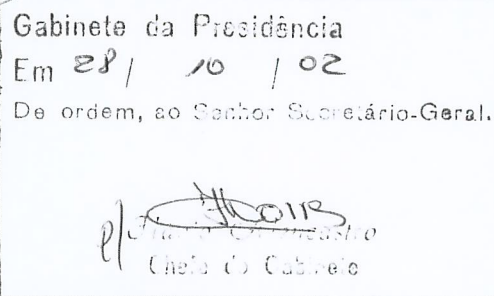 Gabinete da Presidência
Em 28/ 10 / 02
De ordem, ao Senhor Secretário-Geral.
p/
Chefe do Gabinete